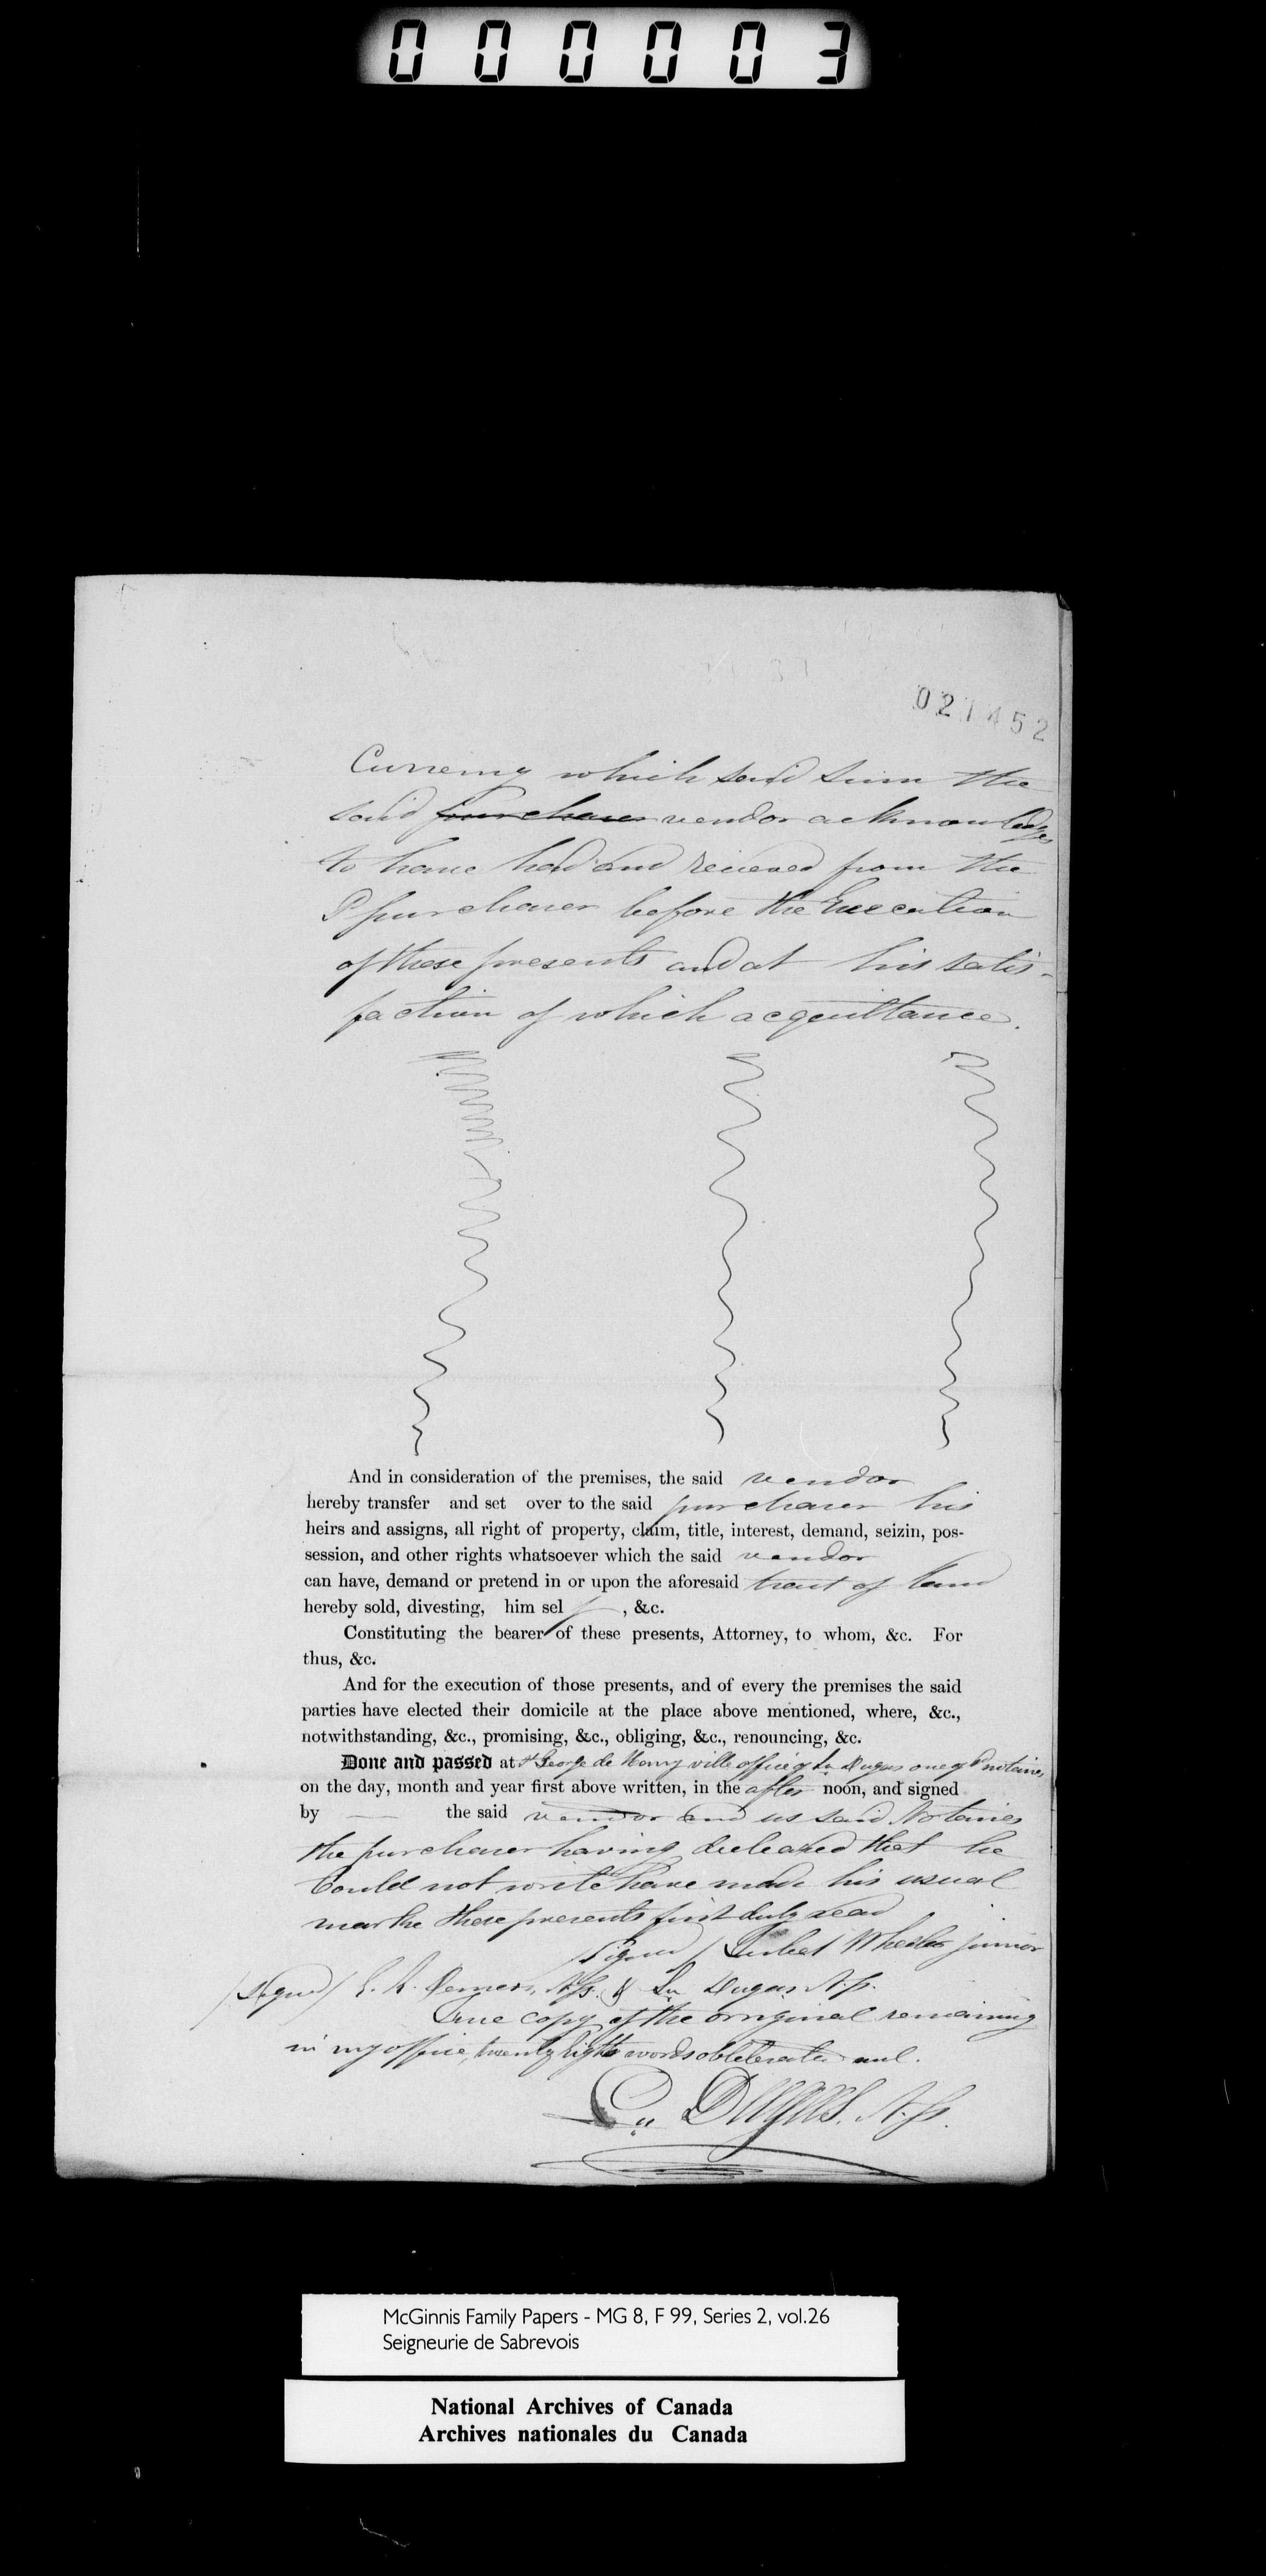 000003
021452
Currency which said sum the
said purchaser vendor acknowledges
to have had and received from the
S purchaser before the Execution
of these presents and at his satis-
faction of which acquittance.
And in consideration of the premises, the said vendor
hereby transfer and set over to the said purchaser his
heirs and assigns, all right of property, claim, title, interest, demand, seizin, pos-
session, and other rights whatsoever which the said vendor
can have, demand or pretend in or upon the aforesaid tract of land
hereby sold, divesting, him self, &c.
Constituting the bearer of these presents, Attorney, to whom, &c. For
thus, &c.
And for the execution of those presents, and of every the premises the said
parties have elected their domicile at the place above mentioned, where, &c.,
notwithstanding, &c., promising, &c., obliging, &c., renouncing, &c.
Done and passed at St George de Henryville office of Ln Dugas one of
on the day, month and year first above written, in the after noon, and signed
by — the said vendor and us said Notaries
the purchaser having declared that he
Could not write have made his usual
marke these presents first duly read
/Signed/ Wheeler junior
/Signed/ Demers, N.P. & Ln Dugas N.P.
True copy of the original remaining
in my office, twenty eight words obliterated null.
Ln Dugas. N.P.
McGinnis Family Papers - MG 8, F 99, Series 2, vol.26
Seigneurie de Sabrevois
National Archives of Canada
Archives nationales du Canada